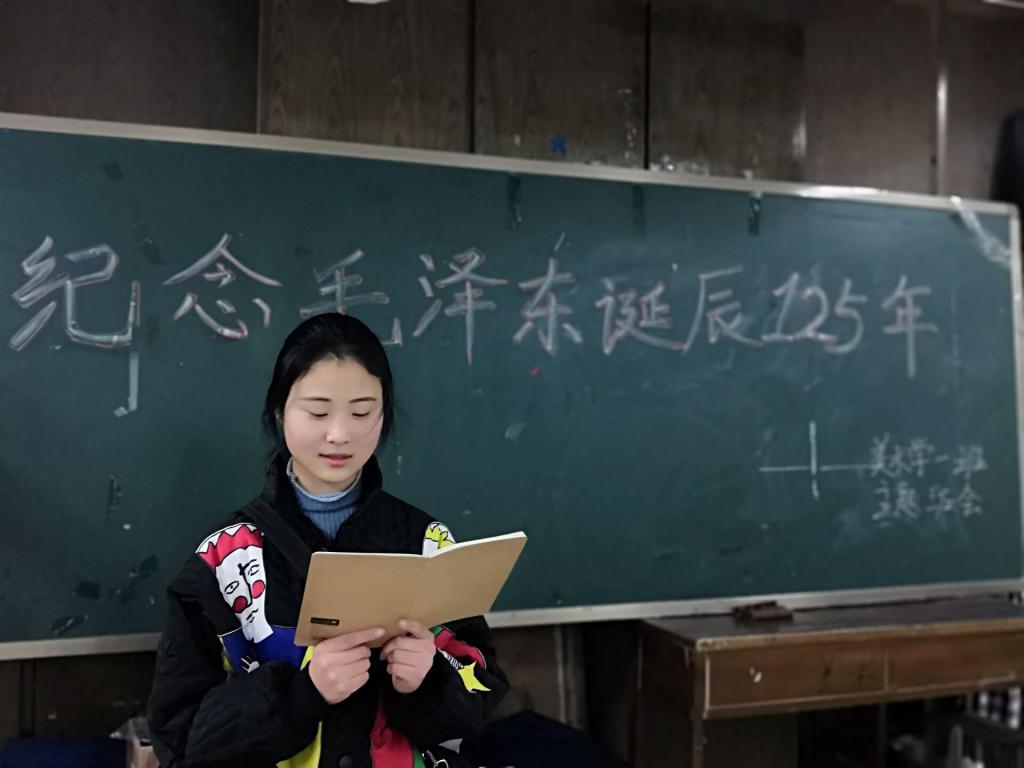 纪念毛泽东诞辰125年
美术学一班
主题班会